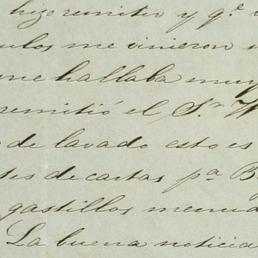 hizo remitir y q.e
me vinieron
me hallaba muy
remitió el S.r
de lavado esto es
de cartas p.a B
gastillos menud
La buena noticia